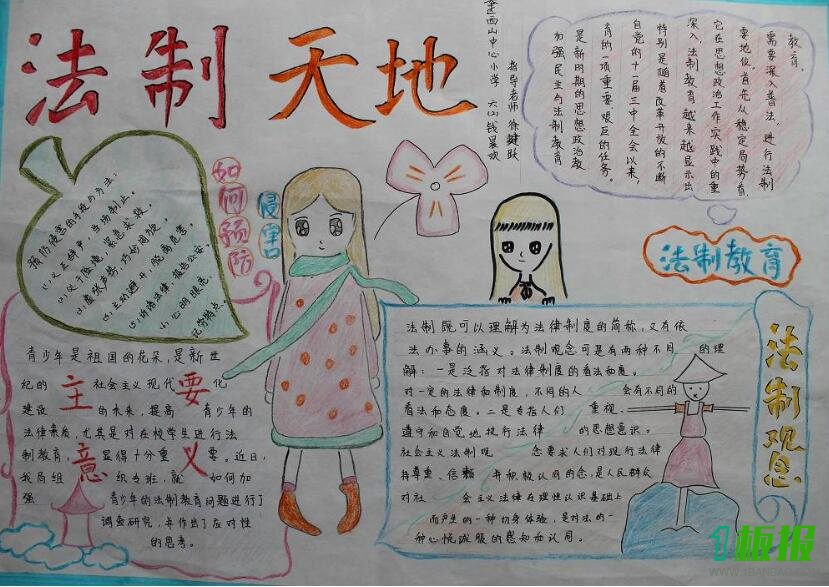 法制天地
金西山中心小学 六(2)钱晨欢
指导老师 徐建跃
教育,
需要深入普法,进行法制
要地位,首先从稳定局势看,
它在思想政治工作实践中的重
深入,法制教育越来越显示出
特别是随着改革开放的不断
自党的十一届三中全会以来,
育的一项重要艰巨的任务。
是新时期的思想政治教
加强民主与法制教育
法制教育
如何预防
侵害
预防侵害的手段与方法:
(1)义正辞严,当场制止。
(2)处于险境,紧急求救。
(3)虚张声势,巧妙周旋。
(4)主动避开,脱离危害
(5)诉诸法律,报告公安
(6)心明眼亮,
记牢特点。
青少年是祖国的花朵,是新世
纪的 社会主义现代 化
建设 的未来,提高 青少年的
法律素质,尤其是对在校学生进行法
制教育, 显得十分重 要。近日,
我局组 织专班,就 如何加
强 青少年的法制教育问题进行了
调查研究,并作出了应对性
的思考。
主要
意义
法制既可以理解为法律制度的简称,又有依
法办事的涵义。法制观念可是有两种不同 的理
解:一是泛指对法律制度的看法和态度。
对一定的法律和制度,不同的人 会有不同的
看法和态度。二是专指人们 重视、
遵守和自觉地执行法律 的思想意识。
社会主义法制观 念要求人们对现行法律
持尊重、信赖 并积极认同的态,是人民群众
对社 会主义法律在理性认识基础上
而产生的一种切身体验,是对法的一
种心悦诚服的感知和认同。
法制观念
1板报
WWW.1BANBAO.COM